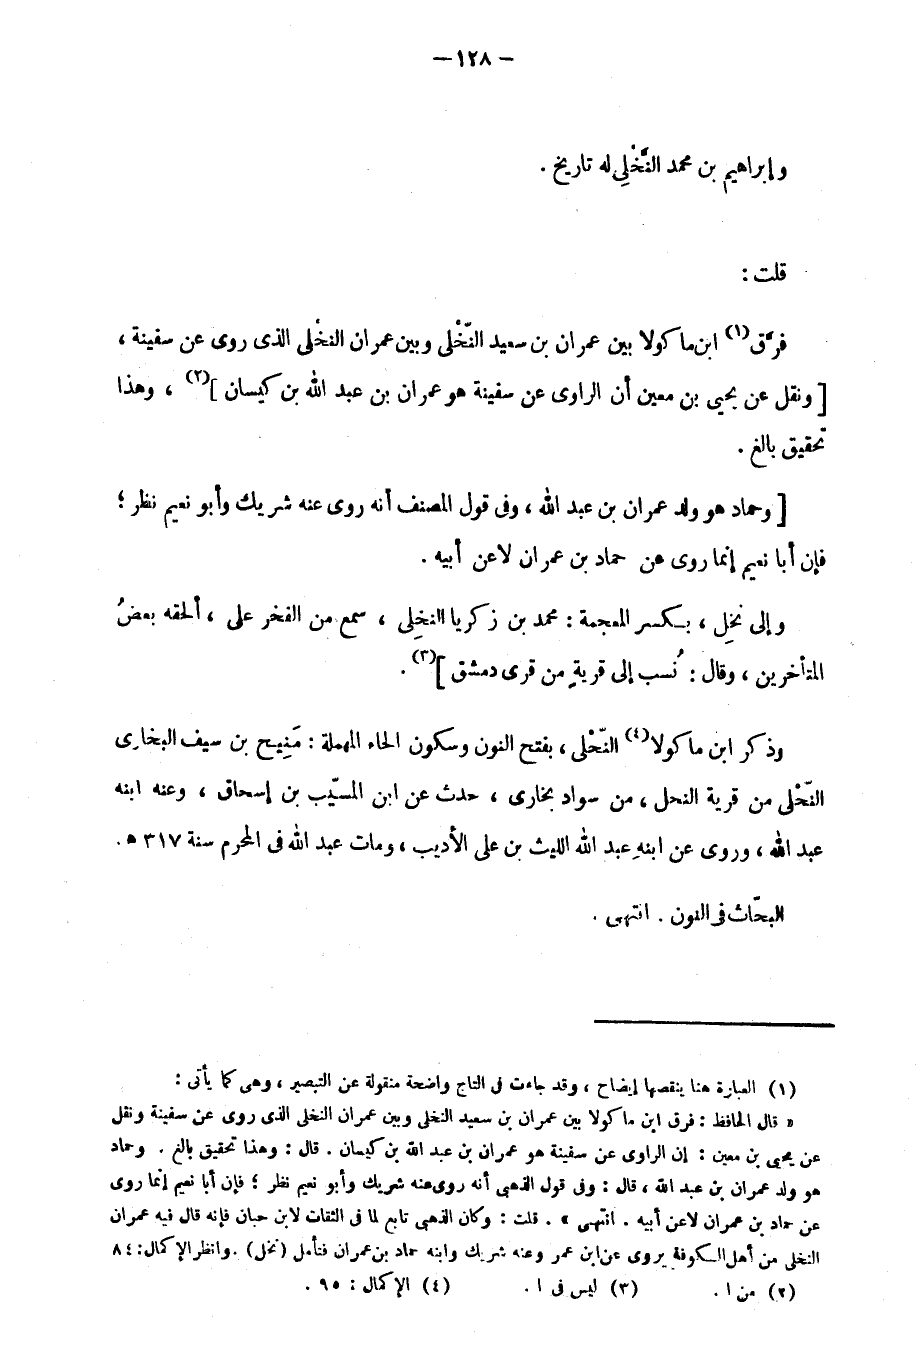 — ١٢٨ —
وإبراهيم بن محمد النَّخْلِي له تاريخ .
قلت :
فرَّق(١) ابن ماكولا بين عمران بن سعيد النَّخْلى وبين عمران النخْلى الذى روى عن سفينة ،
[ ونقل عن يحيى بن معين أن الراوى عن سفينة هو عمران بن عبد الله بن كيسان ](٢) ، وهذا
تحقيق بالغ .
[ وحماد هو ولد عمران بن عبد الله ، وفى قول المصنف أنه روى عنه شريك وأبو نعيم نظر ؛
فإن أبا نعيم إنما روى عن حماد بن عمران لا عن أبيه .
وإلى نَخِل ، بكسر المعجمة : محمد بن زكريا النخِلى ، سمع من الفخر على ، ألحقه بعضُ
المتأخرين ، وقال : نُسب إلى قريةٍ من قرى دمشق ](٣) .
وذكر ابن ماكولا(٤) النَّحْلى ، بفتح النون وسكون الحاء المهملة : مَنِيح بن سيف البخارى
النَّحْلى من قرية النحل ، من سواد بخارى ، حدث عن ابن المسيّب بن إسحاق ، وعنه ابنه
عبد الله ، وروى عن ابنهِ عبد الله الليث بن على الأديب ، ومات عبد الله فى المحرم سنة ٣١٧ ه .
البحّاث فى النون . انتهى .
(١) العبارة هنا ينقصها إيضاح ، وقد جاءت فى التاج واضحة منقولة عن التبصير ، وهى كما يأتى :
« قال الحافظ : فرق ابن ماكولا بين عمران بن سعيد النخلى وبين عمران النخلى الذى روى عن سفينة ونقل
عن يحيى بن معين : إن الراوى عن سفينة هو عمران بن عبد الله بن كيسان . قال : وهذا تحقيق بالغ . وحماد
هو ولد عمران بن عبد الله ، قال : وفى قول الذهبى أنه روى عنه شريك وأبو نعيم نظر ؛ فإن أبا نعيم إنما روى
عن حماد بن عمران لا عن أبيه . انتهى » . قلت : وكان الذهبى تابع لما فى الثقات لابن حبان فإنه قال فيه عمران
النخلى من أهل الكوفة يروى عن ابن عمر وعنه شريك وابنه حماد بن عمران فتأمل (نخل) . وانظر الإكمال : ٨٤
(٢) من ا . (٣) ليس فى ا . (٤) الإكمال : ٩٥ .